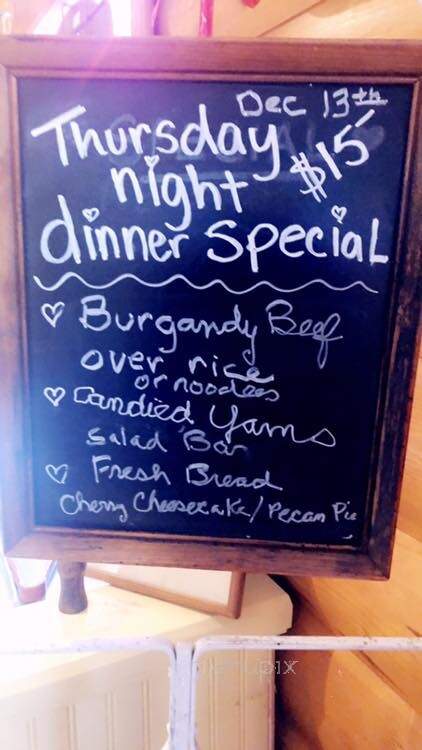 Dec 13th
Thursday
night $15
dinner special
Burgandy Beef
over rice
or noodles
Candied Yams
Salad Bar
Fresh Bread
Cherry Cheesecake/Pecan Pie